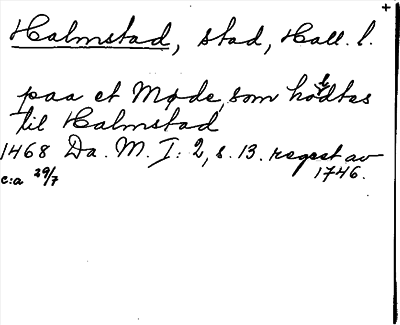 +
Halmstad, stad, Hall. l.
paa et Møde, som hodtes
til Halmstad
1468 Da. M. I: 2, s. 13. regest av
c:a 29/7 1746.